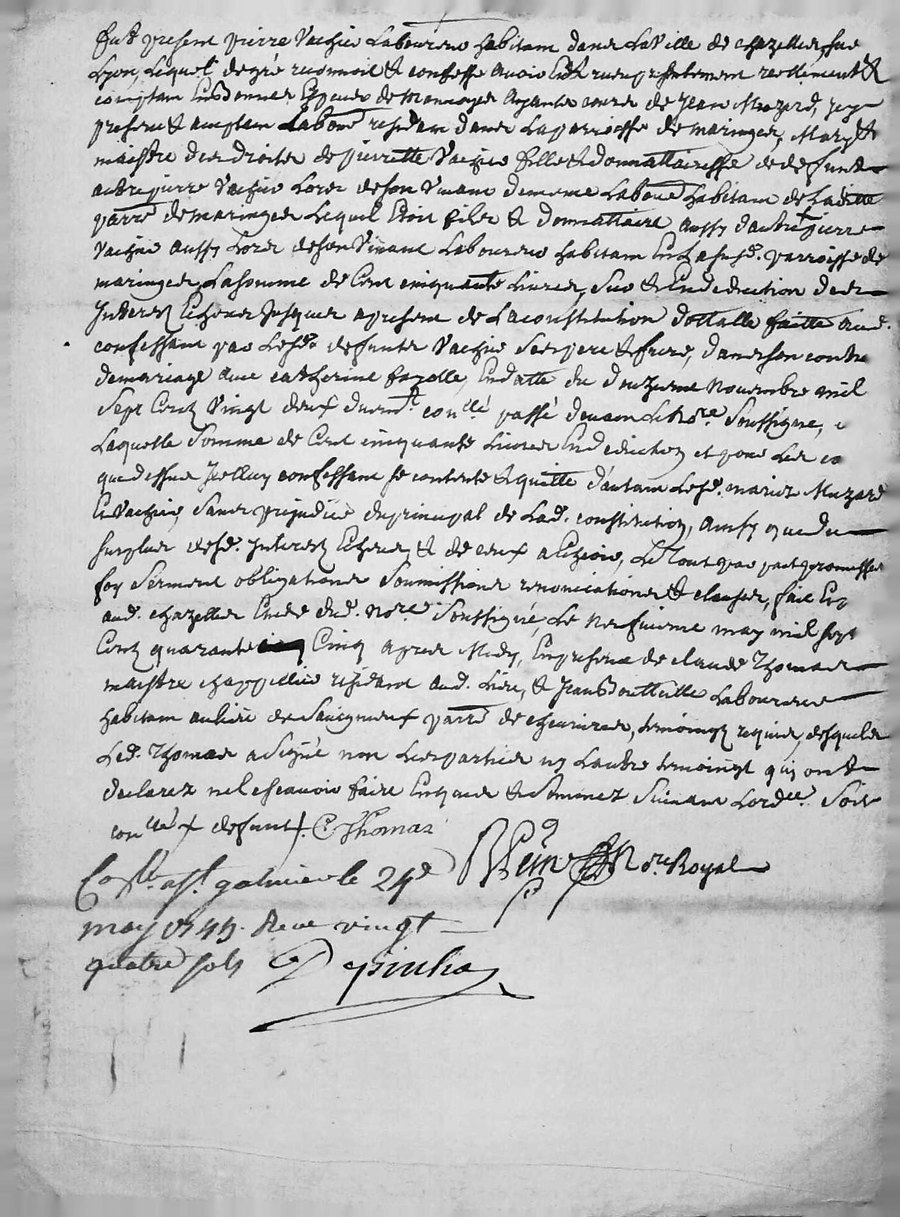 fut present pierre Vachie Laboureur habitant dans La Ville de chazelle sur
Lyon, Lequel de gré reconnoit & confesse avoir Eu & receu presentement reellement &
comptant En bonnes Especes de monnoyes ayants cours de Jean Muzard, icy
present & acceptant Labour residant dans La parroisse de maringes, Mary &
maistre des droits de pierrette Vachie fille & donnattairesse de defunt
autre pierre Vachie Lors de son Vivant dememe Labour habitant de Laditte
parre de maringes Lequel Etoit fils & donnattaire aussy d'autre pierre
Vachie aussy Lors de son Vivant Laboureur habitant En La susd. parroisse de
maringes, La somme de Cent cinquante Livres, Sur & En deduction des
Interets Echeus Jusques apresent de La constitution dottalle faitte aud.
confessant par Lesd. defunts Vachie Ses pere & frere, dans son contra
de mariage avec catherine fayolle, En datte du douzieme Novembre mil
Sept Cent Vingt deux duemt. con.lé passé devant Le no.re Soussigné,
Laquelle Somme de Cent cinquante Livres En deduction et pour Les
que dessus Icelluy confessant se contente & quitte d'autant Lesd. mariez Muzard
& Vachie, Sans prejudice du principal de Lad. constitution, Ainsy que du
surplus desd. Interets Echeus & de ceux a Echeoir, Le Tout par pact promesses
foy Serment obligations Soumissions renonciations & clauses, fait En
aud. chazelles Etude dud. no.re Soussigné, Le neufvieme may mil sept
Cent quarante Cinq apres Midy, En presence de claude Thomas
maistre chappellier residant aud. Lieu, & Jean Laboureur
habitant au lieu de Savigneux parre de chevrieres, temoings requis, desquels
Led. Thomas a Signé non Les parties ny L'autre temoingt qui ont
declarez ne Le scavoir faire Enquis & Sommez Suivant L'ord.ce Soit
con.llé X defunt. C. Thomas
no.re Royal
Co.llé a St. galmier le 24e
may 1745. Receu vingt
quatre sols Depinhac